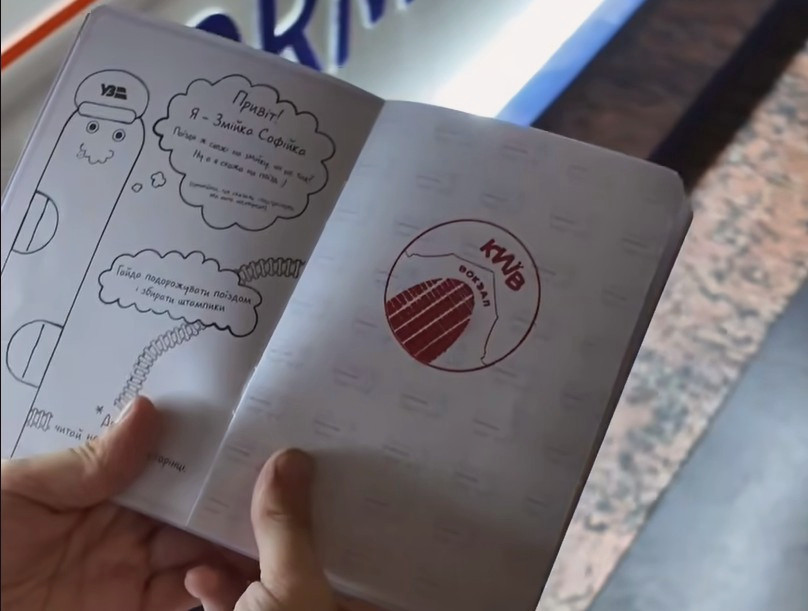 УЗ
Привіт!
Я - Змійка Софійка
Поїзд ж схожі на змійку, чи не так?
Ну а я схожа на поїзд!
Гайда подорожувати поїздом
і збирати штампики
читай на
сторінці
КИЇВ
ВОКЗАЛ